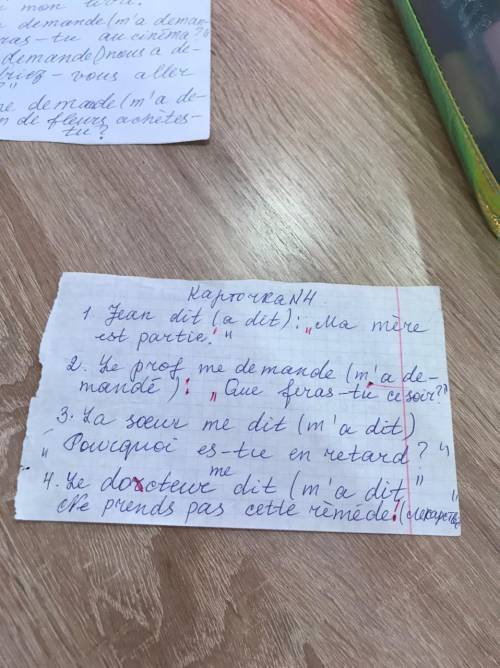 mon
demande (m'a deman-
ras-tu au cinéma?"
demande) nous a de-
vous aller
?"
me demande (m'a de-
n de fleurs achètes-
tu?
Карточка N4
1. Jean dit (a dit): „Ma mère
est partie."
2. Le prof me demande (m'a de-
mandé): „Que feras-tu ce soir?"
3. La sœur me dit (m'a dit)
„Pourquoi es-tu en retard?"
4. Le docteur me dit (m'a dit "
Ne prends pas cette rèméde! (лекарство